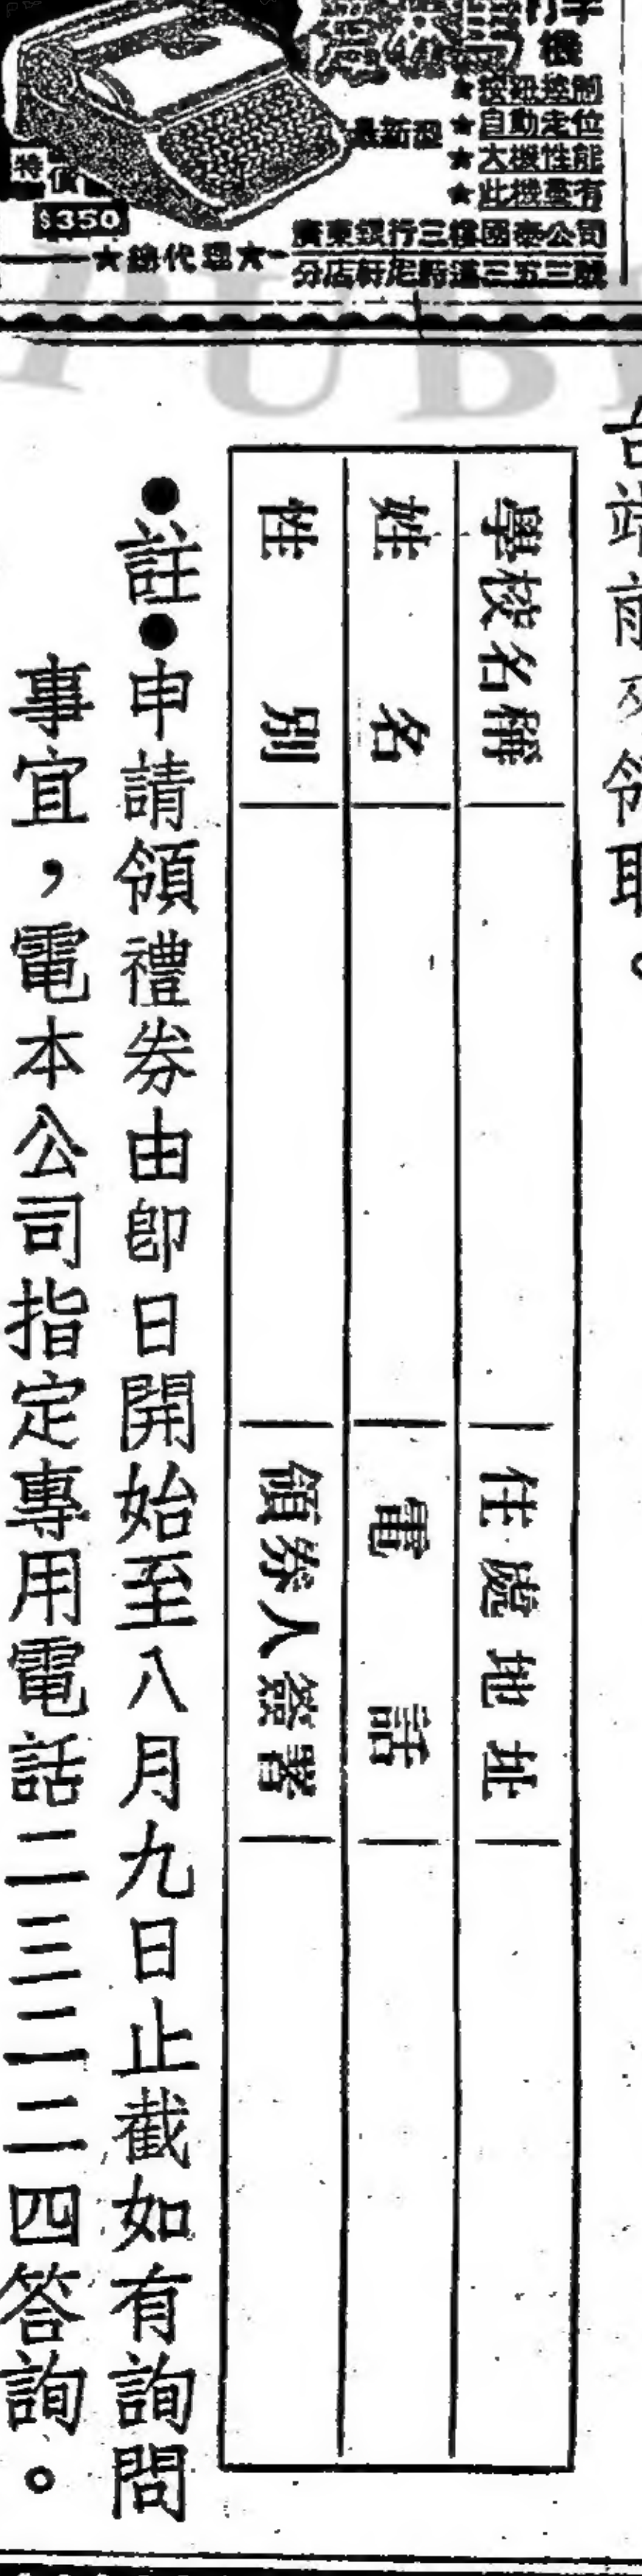 字機
★按鈕控制
★自動走位
★大機性能
★此機靈有
最新型
特價
$350
★總代理★
廣東銀行三樓國泰公司
分店軒尼詩道三五三號
PUB
前來領取。
學校名稱
住處地址
姓名
電話
性別
領券人簽署
●註●申請領禮券由即日開始至八月九日止截如有詢問
事宜，電本公司指定專用電話二三二二四答詢。